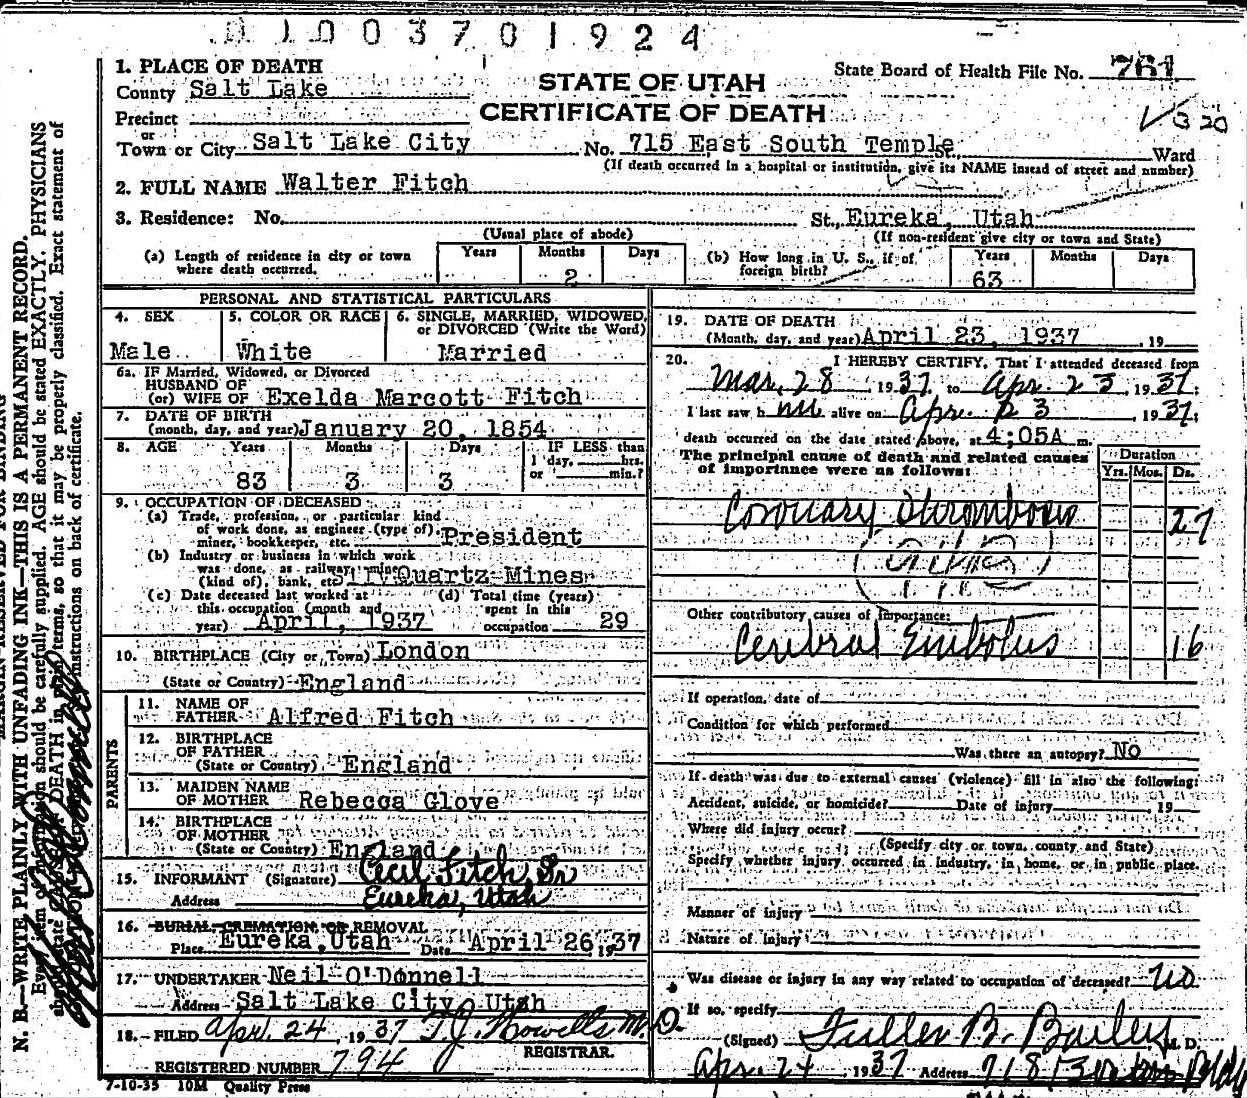 0 1 0 0 3 7 0 1 9 2 4
1. PLACE OF DEATH
County Salt Lake
STATE OF UTAH
CERTIFICATE OF DEATH
State Board of Health File No. 761
Precinct
or
Town or City Salt Lake City No. 715 East South Temple St., Ward
(If death occurred in a hospital or institution, give its NAME instead of street and number)
2. FULL NAME Walter Fitch
3. Residence: No. St., Eureka, Utah
(Usual place of abode) (If non-resident give city or town and State)
(a) Length of residence in city or town where death occurred. Years Months 2 Days
(b) How long in U. S., if of foreign birth? Years 63 Months Days
PERSONAL AND STATISTICAL PARTICULARS
4. SEX Male
5. COLOR OR RACE White
6. SINGLE, MARRIED, WIDOWED, or DIVORCED (Write the Word) Married
6a. IF Married, Widowed, or Divorced
HUSBAND OF
(or) WIFE OF Exelda Marcott Fitch
7. DATE OF BIRTH
(month, day, and year) January 20, 1854
8. AGE Years 83 Months 3 Days 3 IF LESS than 1 day, hrs. or min.?
9. OCCUPATION OF DECEASED
(a) Trade, profession, or particular kind
of work done, as engineer (type of)
miner, bookkeeper, etc. President
(b) Industry or business in which work
was done, as railway, mine
(kind of), bank, etc. Quartz Mines
(c) Date deceased last worked at
this occupation (month and
year) April, 1937
(d) Total time (years)
spent in this
occupation 29
10. BIRTHPLACE (City or Town) London
(State or Country) England
PARENTS
11. NAME OF
FATHER Alfred Fitch
12. BIRTHPLACE
OF FATHER
(State or Country) England
13. MAIDEN NAME
OF MOTHER Rebecca Glove
14. BIRTHPLACE
OF MOTHER
(State or Country) England
15. INFORMANT (Signature) Cecil Fitch Sr
Address Eureka, Utah
16. BURIAL, CREMATION, OR REMOVAL
Place Eureka, Utah Date April 26, 1937
17. UNDERTAKER Neil O'Donnell
Address Salt Lake City Utah
18. FILED Apr. 24, 1937 T.J. Howells M.D.
REGISTRAR.
REGISTERED NUMBER 794
7-10-35 10M Quality Press
19. DATE OF DEATH
(Month, day, and year) April 23, 1937, 19
20. I HEREBY CERTIFY, That I attended deceased from
Mar. 28, 1937 to Apr. 23, 1937;
I last saw him alive on Apr. 23, 1937;
death occurred on the date stated above, at 4:05A m.
The principal cause of death and related causes
of importance were as follows:
Duration
Yrs. Mos. Ds.
Coronary Thrombosis 27
Other contributory causes of importance:
Cerebral Embolus 16
If operation, date of
Condition for which performed
Was there an autopsy? No
If death was due to external causes (violence) fill in also the following:
Accident, suicide, or homicide? Date of injury 19
Where did injury occur?
(Specify city or town, county, and State)
Specify whether injury occurred in industry, in home, or in public place.
Manner of injury
Nature of injury
Was disease or injury in any way related to occupation of deceased? no
If so, specify
(Signed) Fuller B. Bailey M. D.
Apr. 24, 1937 Address 718
N. B.—WRITE PLAINLY WITH UNFADING INK—THIS IS A PERMANENT RECORD.
should be carefully supplied. AGE should be stated EXACTLY. PHYSICIANS
DEATH in plain terms, so that it may be properly classified. Exact statement of
instructions on back of certificate.